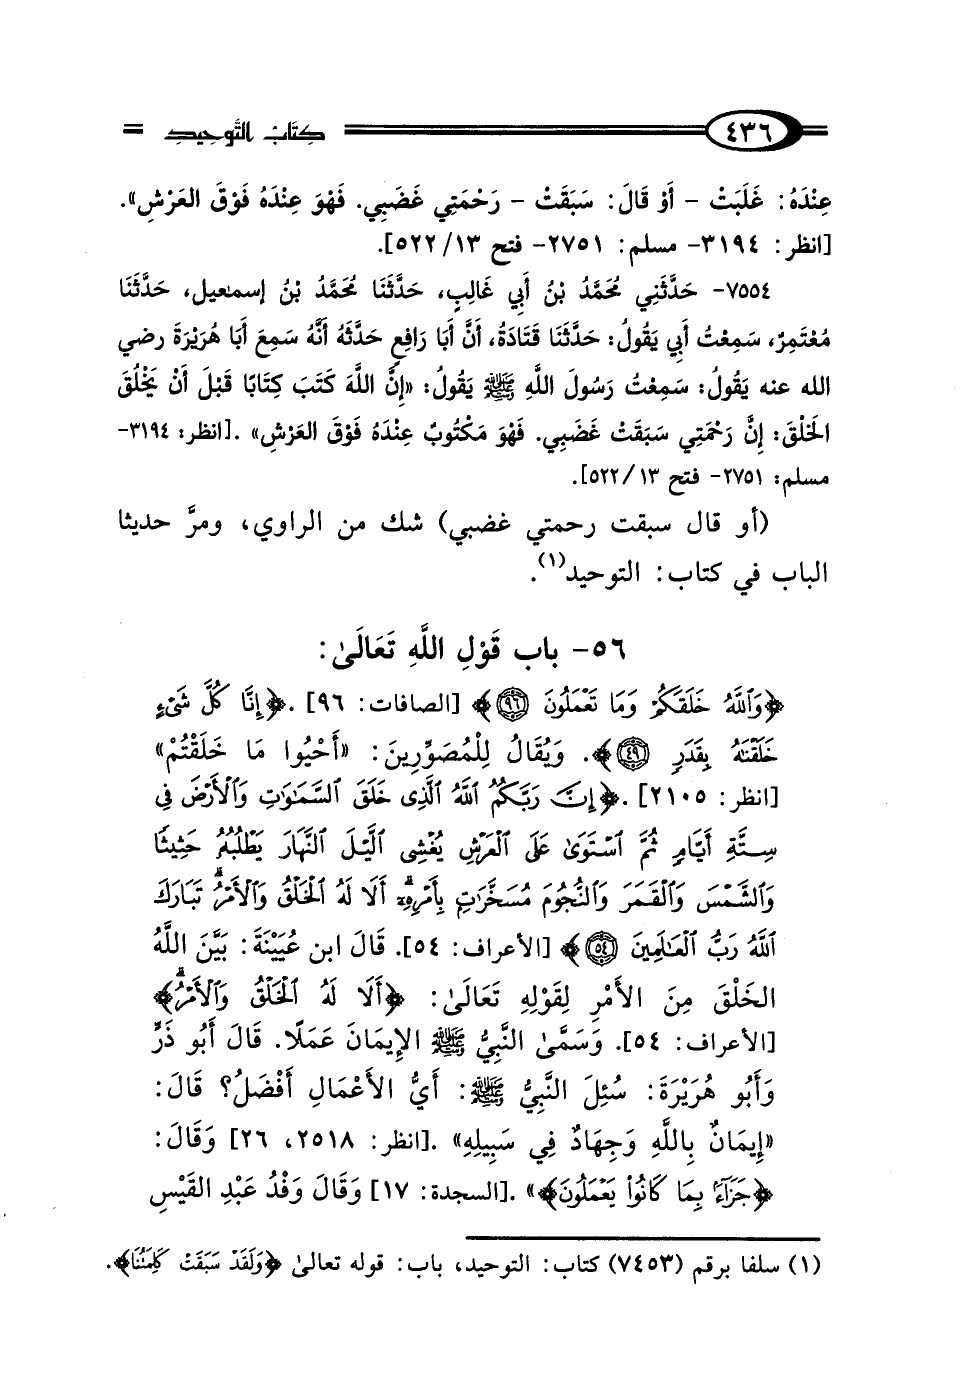 ٤٣٦ كتاب التوحيد
عِنْدَهُ: غَلَبَتْ - أَوْ قَالَ: سَبَقَتْ - رَحْمَتِي غَضَبِي. فَهْوَ عِنْدَهُ فَوْقَ العَرْشِ».
[انظر: ٣١٩٤- مسلم: ٢٧٥١- فتح ١٣/ ٥٢٢].
٧٥٥٤- حَدَّثَنِي مُحَمَّدُ بْنُ أَبِي غَالِبٍ، حَدَّثَنَا مُحَمَّدُ بْنُ إسمعيل، حَدَّثَنَا
مُعْتَمِرٌ، سَمِعْتُ أَبِي يَقُولُ: حَدَّثَنَا قَتَادَةُ، أَنَّ أَبَا رَافِعٍ حَدَّثَهُ أَنَّهُ سَمِعَ أَبَا هُرَيْرَةَ رضي
الله عنه يَقُولُ: سَمِعْتُ رَسُولَ اللَّهِ ﷺ يَقُولُ: «إِنَّ اللَّهَ كَتَبَ كِتَابًا قَبْلَ أَنْ يَخْلُقَ
الخَلْقَ: إِنَّ رَحْمَتِي سَبَقَتْ غَضَبِي. فَهْوَ مَكْتُوبٌ عِنْدَهُ فَوْقَ العَرْشِ» .[انظر: ٣١٩٤-
مسلم: ٢٧٥١- فتح ١٣/ ٥٢٢].
(أو قال سبقت رحمتي غضبي) شك من الراوي، ومرَّ حديثا
الباب في كتاب: التوحيد(١).
٥٦- باب قَوْلِ اللَّهِ تَعَالَىٰ:
﴿وَٱللَّهُ خَلَقَكُمْ وَمَا تَعْمَلُونَ ٩٦﴾ [الصافات: ٩٦] .﴿إِنَّا كُلَّ شَىْءٍ
خَلَقْنَٰهُ بِقَدَرٍ ٤٩﴾. وَيُقَالُ لِلْمُصَوِّرِينَ: «أَحْيُوا مَا خَلَقْتُمْ»
[انظر: ٢١٠٥] .﴿إِنَّ رَبَّكُمُ ٱللَّهُ ٱلَّذِى خَلَقَ ٱلسَّمَٰوَٰتِ وَٱلْأَرْضَ فِى
سِتَّةِ أَيَّامٍ ثُمَّ ٱسْتَوَىٰ عَلَى ٱلْعَرْشِ يُغْشِى ٱلَّيْلَ ٱلنَّهَارَ يَطْلُبُهُۥ حَثِيثًا
وَٱلشَّمْسَ وَٱلْقَمَرَ وَٱلنُّجُومَ مُسَخَّرَٰتٍۭ بِأَمْرِهِۦٓ ۗ أَلَا لَهُ ٱلْخَلْقُ وَٱلْأَمْرُ ۗ تَبَارَكَ
ٱللَّهُ رَبُّ ٱلْعَٰلَمِينَ ٥٤﴾ [الأعراف: ٥٤]. قَالَ ابن عُيَيْنَةَ: بَيَّنَ اللَّهُ
الخَلْقَ مِنَ الأَمْرِ لِقَوْلِهِ تَعَالَىٰ: ﴿أَلَا لَهُ ٱلْخَلْقُ وَٱلْأَمْرُ ۗ﴾
[الأعراف: ٥٤]. وَسَمَّىٰ النَّبِيُّ ﷺ الإِيمَانَ عَمَلًا. قَالَ أَبُو ذَرٍّ
وَأَبُو هُرَيْرَةَ: سُئِلَ النَّبِيُّ ﷺ: أَيُّ الأَعْمَالِ أَفْضَلُ؟ قَالَ:
«إِيمَانٌ بِاللَّهِ وَجِهَادٌ فِي سَبِيلِهِ» .[انظر: ٢٥١٨، ٢٦] وَقَالَ:
﴿جَزَآءًۢ بِمَا كَانُوا۟ يَعْمَلُونَ﴾» .[السجدة: ١٧] وَقَالَ وَفْدُ عَبْدِ القَيْسِ
(١) سلفا برقم (٧٤٥٣) كتاب: التوحيد، باب: قوله تعالىٰ ﴿وَلَقَدْ سَبَقَتْ كَلِمَتُنَا﴾.